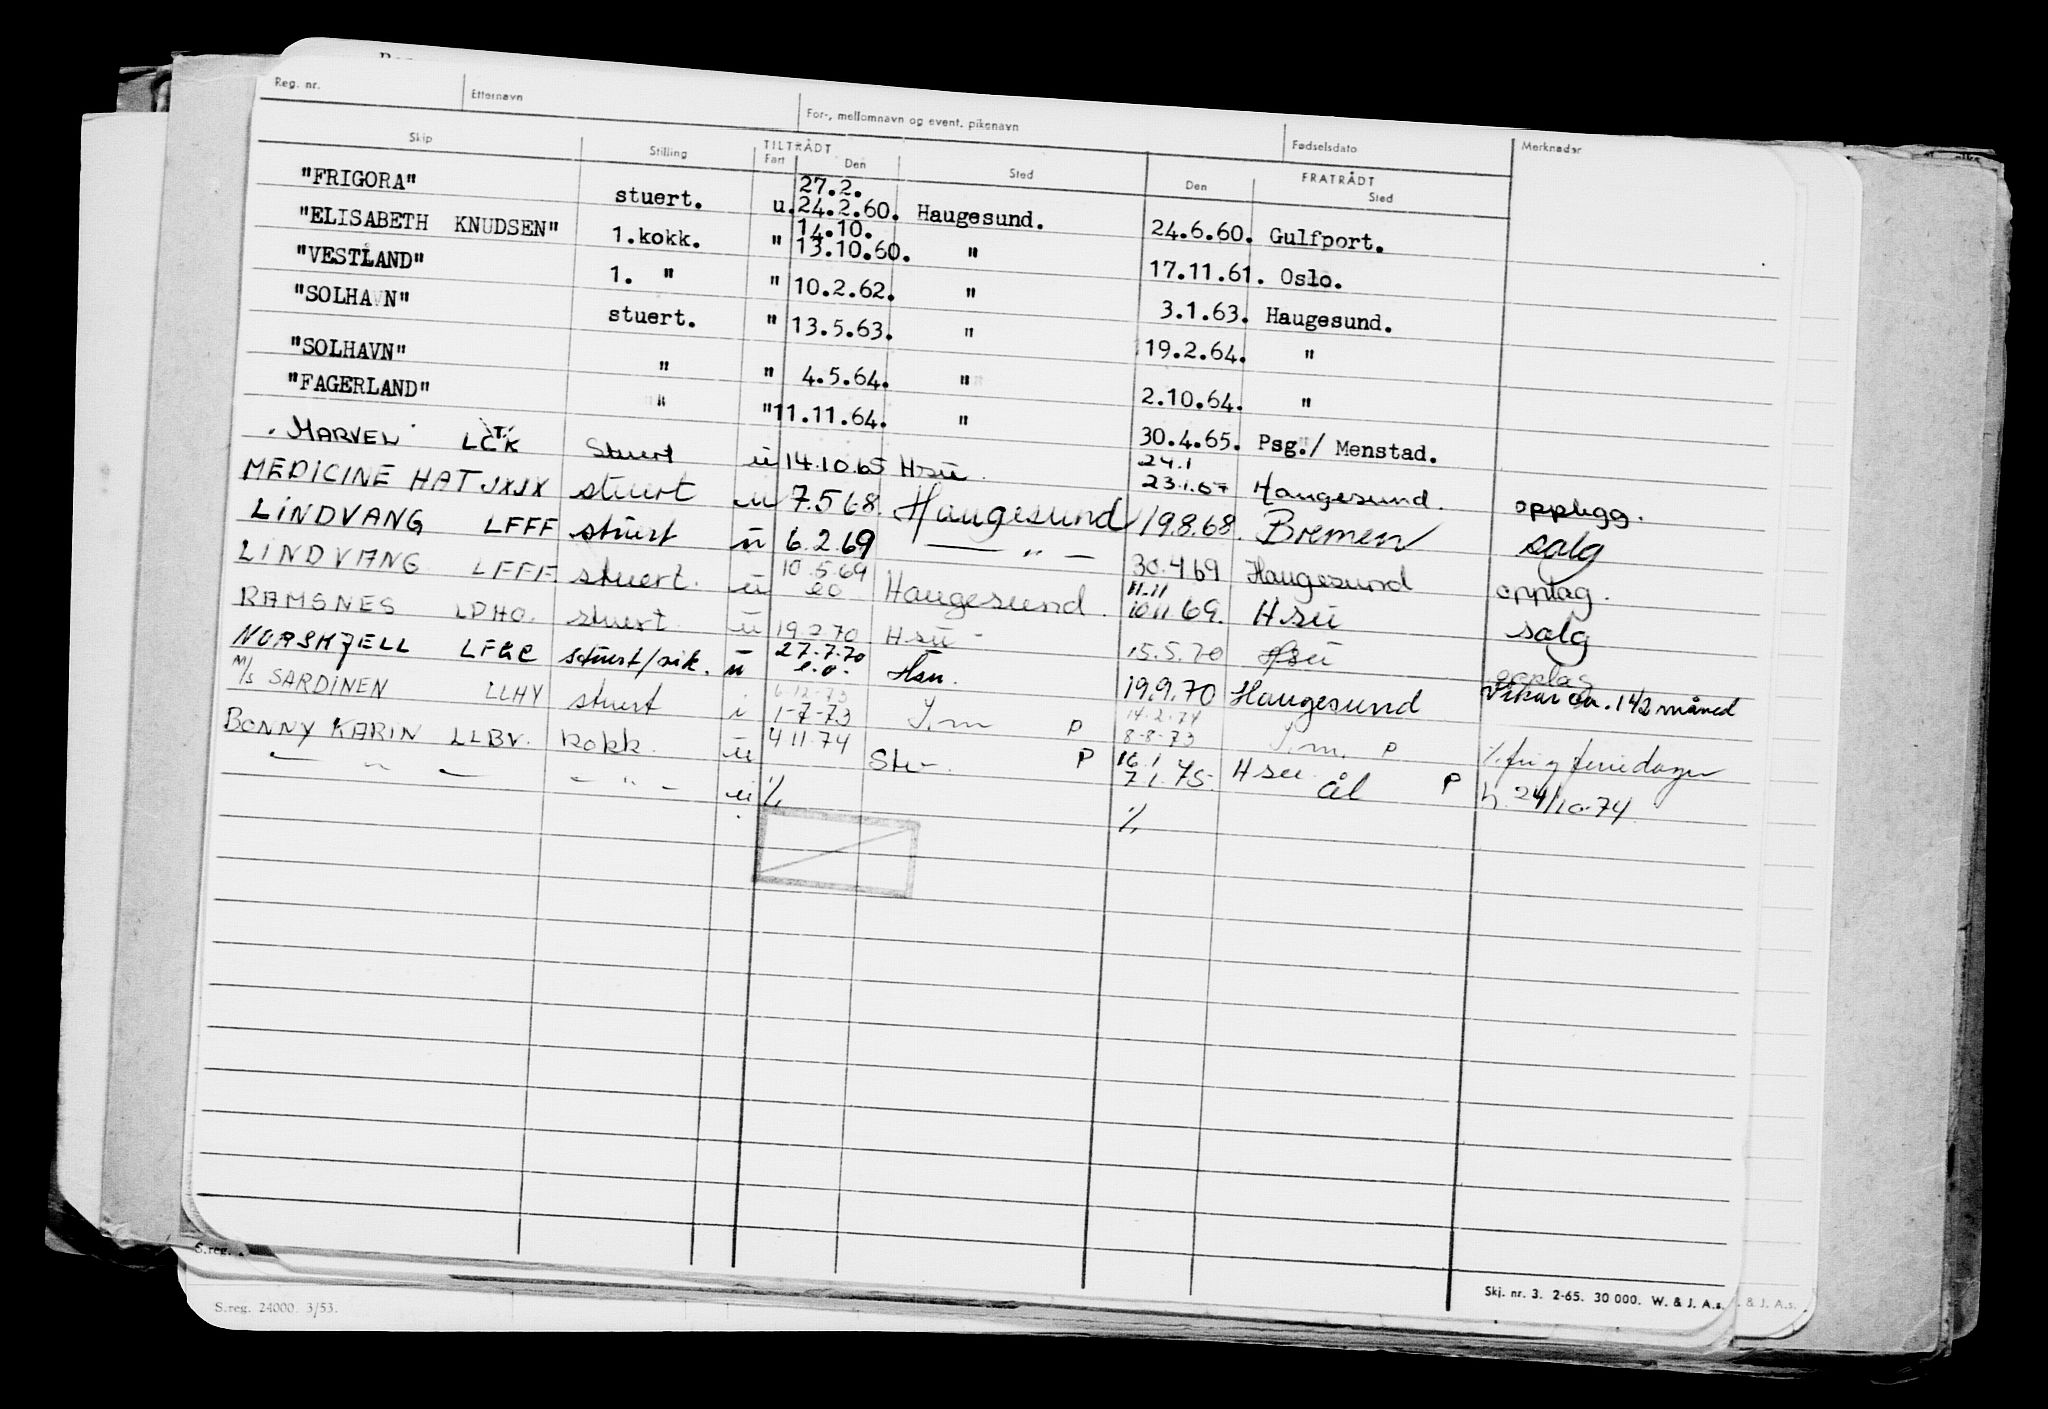 Reg. nr. Etternavn For-, mellomnavn og event. pikenavn Fødselsdato Merknader
Skip Stilling TILTRÅDT FRATRÅDT
Fart Den Sted Den Sted
27.2.
"FRIGORA" stuert. u. 24.2.60. Haugesund. 24.6.60. Gulfport.
14.10.
"ELISABETH KNUDSEN" 1.kokk. " 13.10.60. " 17.11.61. Oslo.
"VESTLAND" 1. " " 10.2.62. " 3.1.63. Haugesund.
"SOLHAVN" stuert. " 13.5.63. " 19.2.64. "
"SOLHAVN" " " 4.5.64. " 2.10.64. "
"FAGERLAND" " " 11.11.64. " 30.4.65. Psg./ Menstad.
24.1
"MARVEL" stuert u 14.10.65 Hsu. 23.1.67 Haugesund. opplegg.
MEDICINE HAT JXJX stuert u 7.5 68. Haugesund 19.8.68. Bremen salg
LINDVANG LFFF stuert u 6.2.69 — " — 30.4 69 Haugesund opplag.
10.5.69 11.11
LINDVANG LFFF stuert. u eo Haugesund. 10.11.69. Hsu salg
RAMSNES LDHO. stuert. u 19.2.70 Hsu 15.5.70 Hsu opplag
27.7.70
NORSKJELL stuert/vik. u e.o. Hsu. 19.9.70 Haugesund Vikar ca. 1 1/2 måned
6-12-73 14-2-74
M/S SARDINEN LLHY stuert i 1-7-73 I.m P 8-8-73 I.m. P
16.1
BONNY KARIN LLBV. kokk. u 4 11.74 P 7.1.75. Hsu.
— " — — " — u % % ål P 24/10-74
S.reg.
S.reg. 24000. 3/53.
Skj. nr. 3. 2-65. 30 000. W. & J. A.s.
& J. A.s.